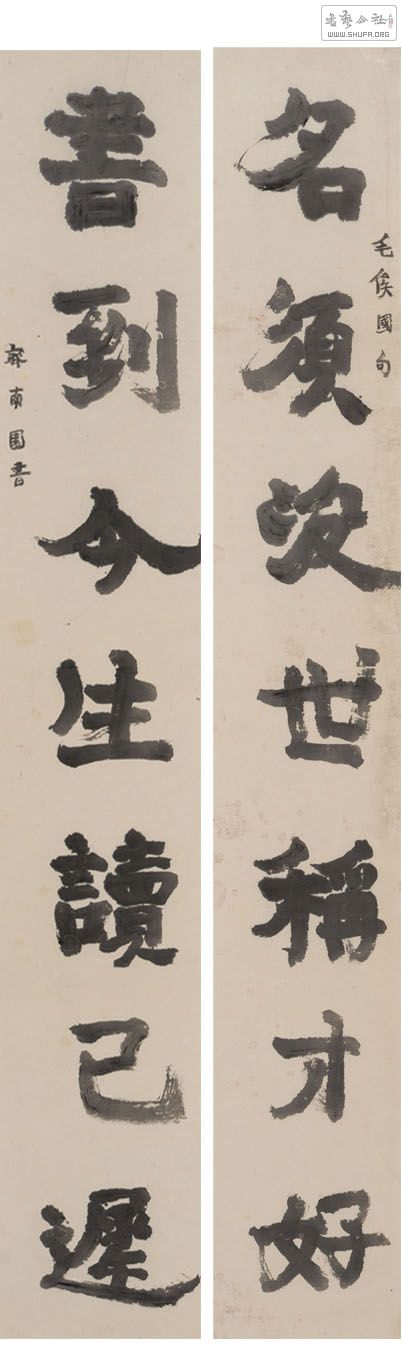 書藝公社
WWW.SHUFA.ORG
名須沒世稱才好
毛俟園句
書到今生讀已遲
南園書